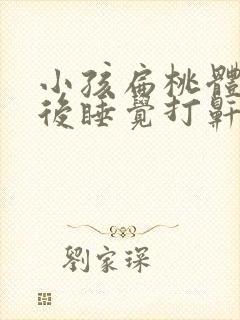 小孩扁桃體
後睡覺打鼾
劉家琛